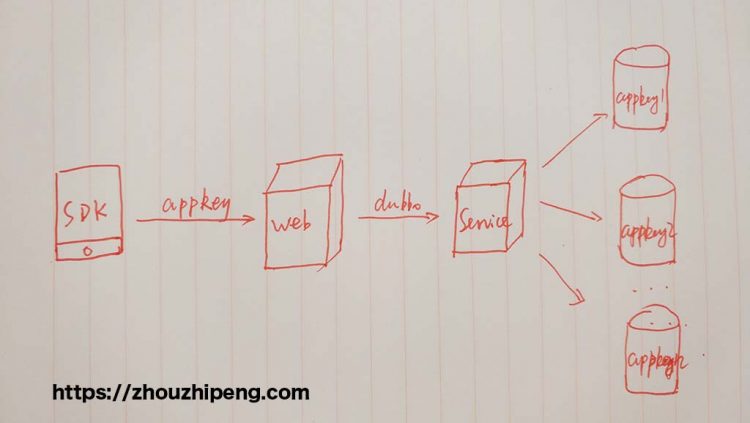 SDK
appkey
web
dubbo
Service
appkey1
appkey2
....
appkeyn
https://zhouzhipeng.com